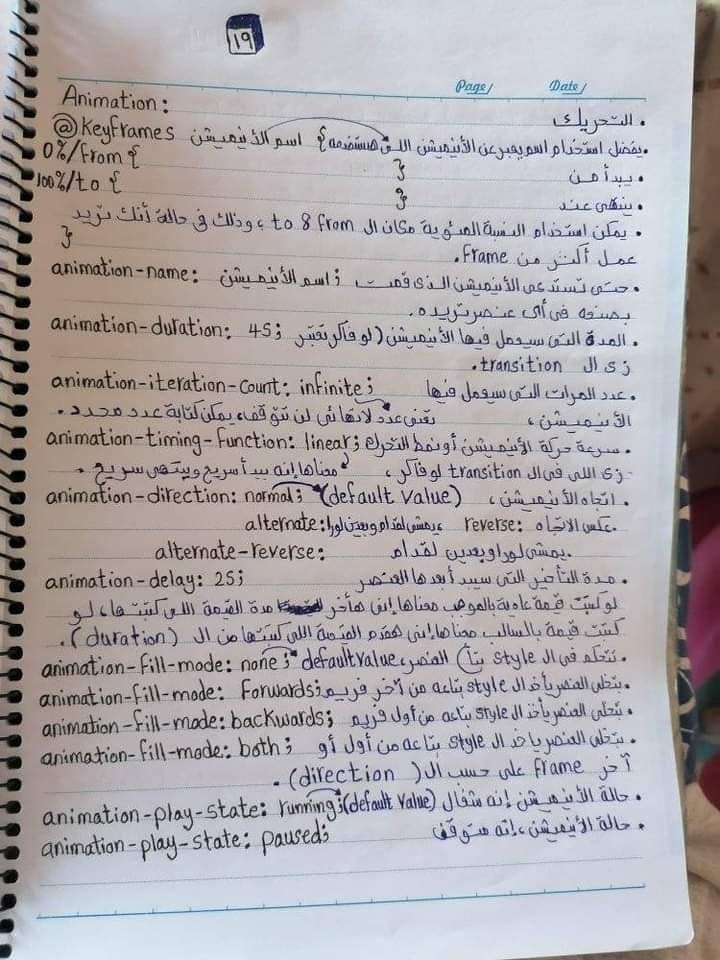 ١٩
Page/ Date/
Animation: • التحريك
@Keyframes اسم الأنيميشن { • يفضل استخدام اسم يعبر عن الأنيميشن اللي هستخدمه
0%/from { } • يبدأ من
100%/to { } • ينتهي عند
• يمكن استخدام النسبة المئوية مكان ال from & to، وذلك في حالة أنك تريد
عمل أكثر من Frame. }
animation-name: اسم الأنيميشن; • حتى تستدعي الأنيميشن الذي قمت
بصنعه في أي عنصر تريده.
animation-duration: 4S; • المدة التي سيعمل فيها الأنيميشن (لو فاكر
زي ال transition.
animation-iteration-count: infinite; • عدد المرات التي سيعمل فيها
الأنيميشن، تعني عدد لانهائي لن تتوقف، يمكن كتابة عدد محدد.
animation-timing-function: linear; • سرعة حركة الأنيميشن أو نمط التحرك
زي اللي في ال transition لو فاكر، معناها إنه يبدأ سريع وينتهي سريع.
animation-direction: normal; (default value) • اتجاه الأنيميشن،
• عكس الاتجاه reverse: ، يمشي لقدام وبعدين لورا alternate:
alternate-reverse: يمشي لورا وبعدين لقدام.
animation-delay: 2S; • مدة التأخير التي سيبدأ بعدها العنصر
لو كتبت قيمة عادية بالموجب معناها إني هأخر مدة القيمة اللي كتبتها، لو
كتبت قيمة بالسالب معناها إني هقدم القيمة اللي كتبتها من ال (duration).
animation-fill-mode: none; default value • تتحكم في ال style بتاع العنصر،
animation-fill-mode: forwards; • بتخلي العنصر يأخذ ال style بتاعه من آخر فريم
animation-fill-mode: backwards; • بتخلي العنصر يأخذ ال style بتاعه من أول فريم
animation-fill-mode: both; • بتخلي العنصر ياخذ ال style بتاعه من أول أو
آخر frame على حسب ال (direction).
animation-play-state: running; (default value) • حالة الأنيميشن إنه شغال
animation-play-state: paused; • حالة الأنيميشن، إنه متوقف